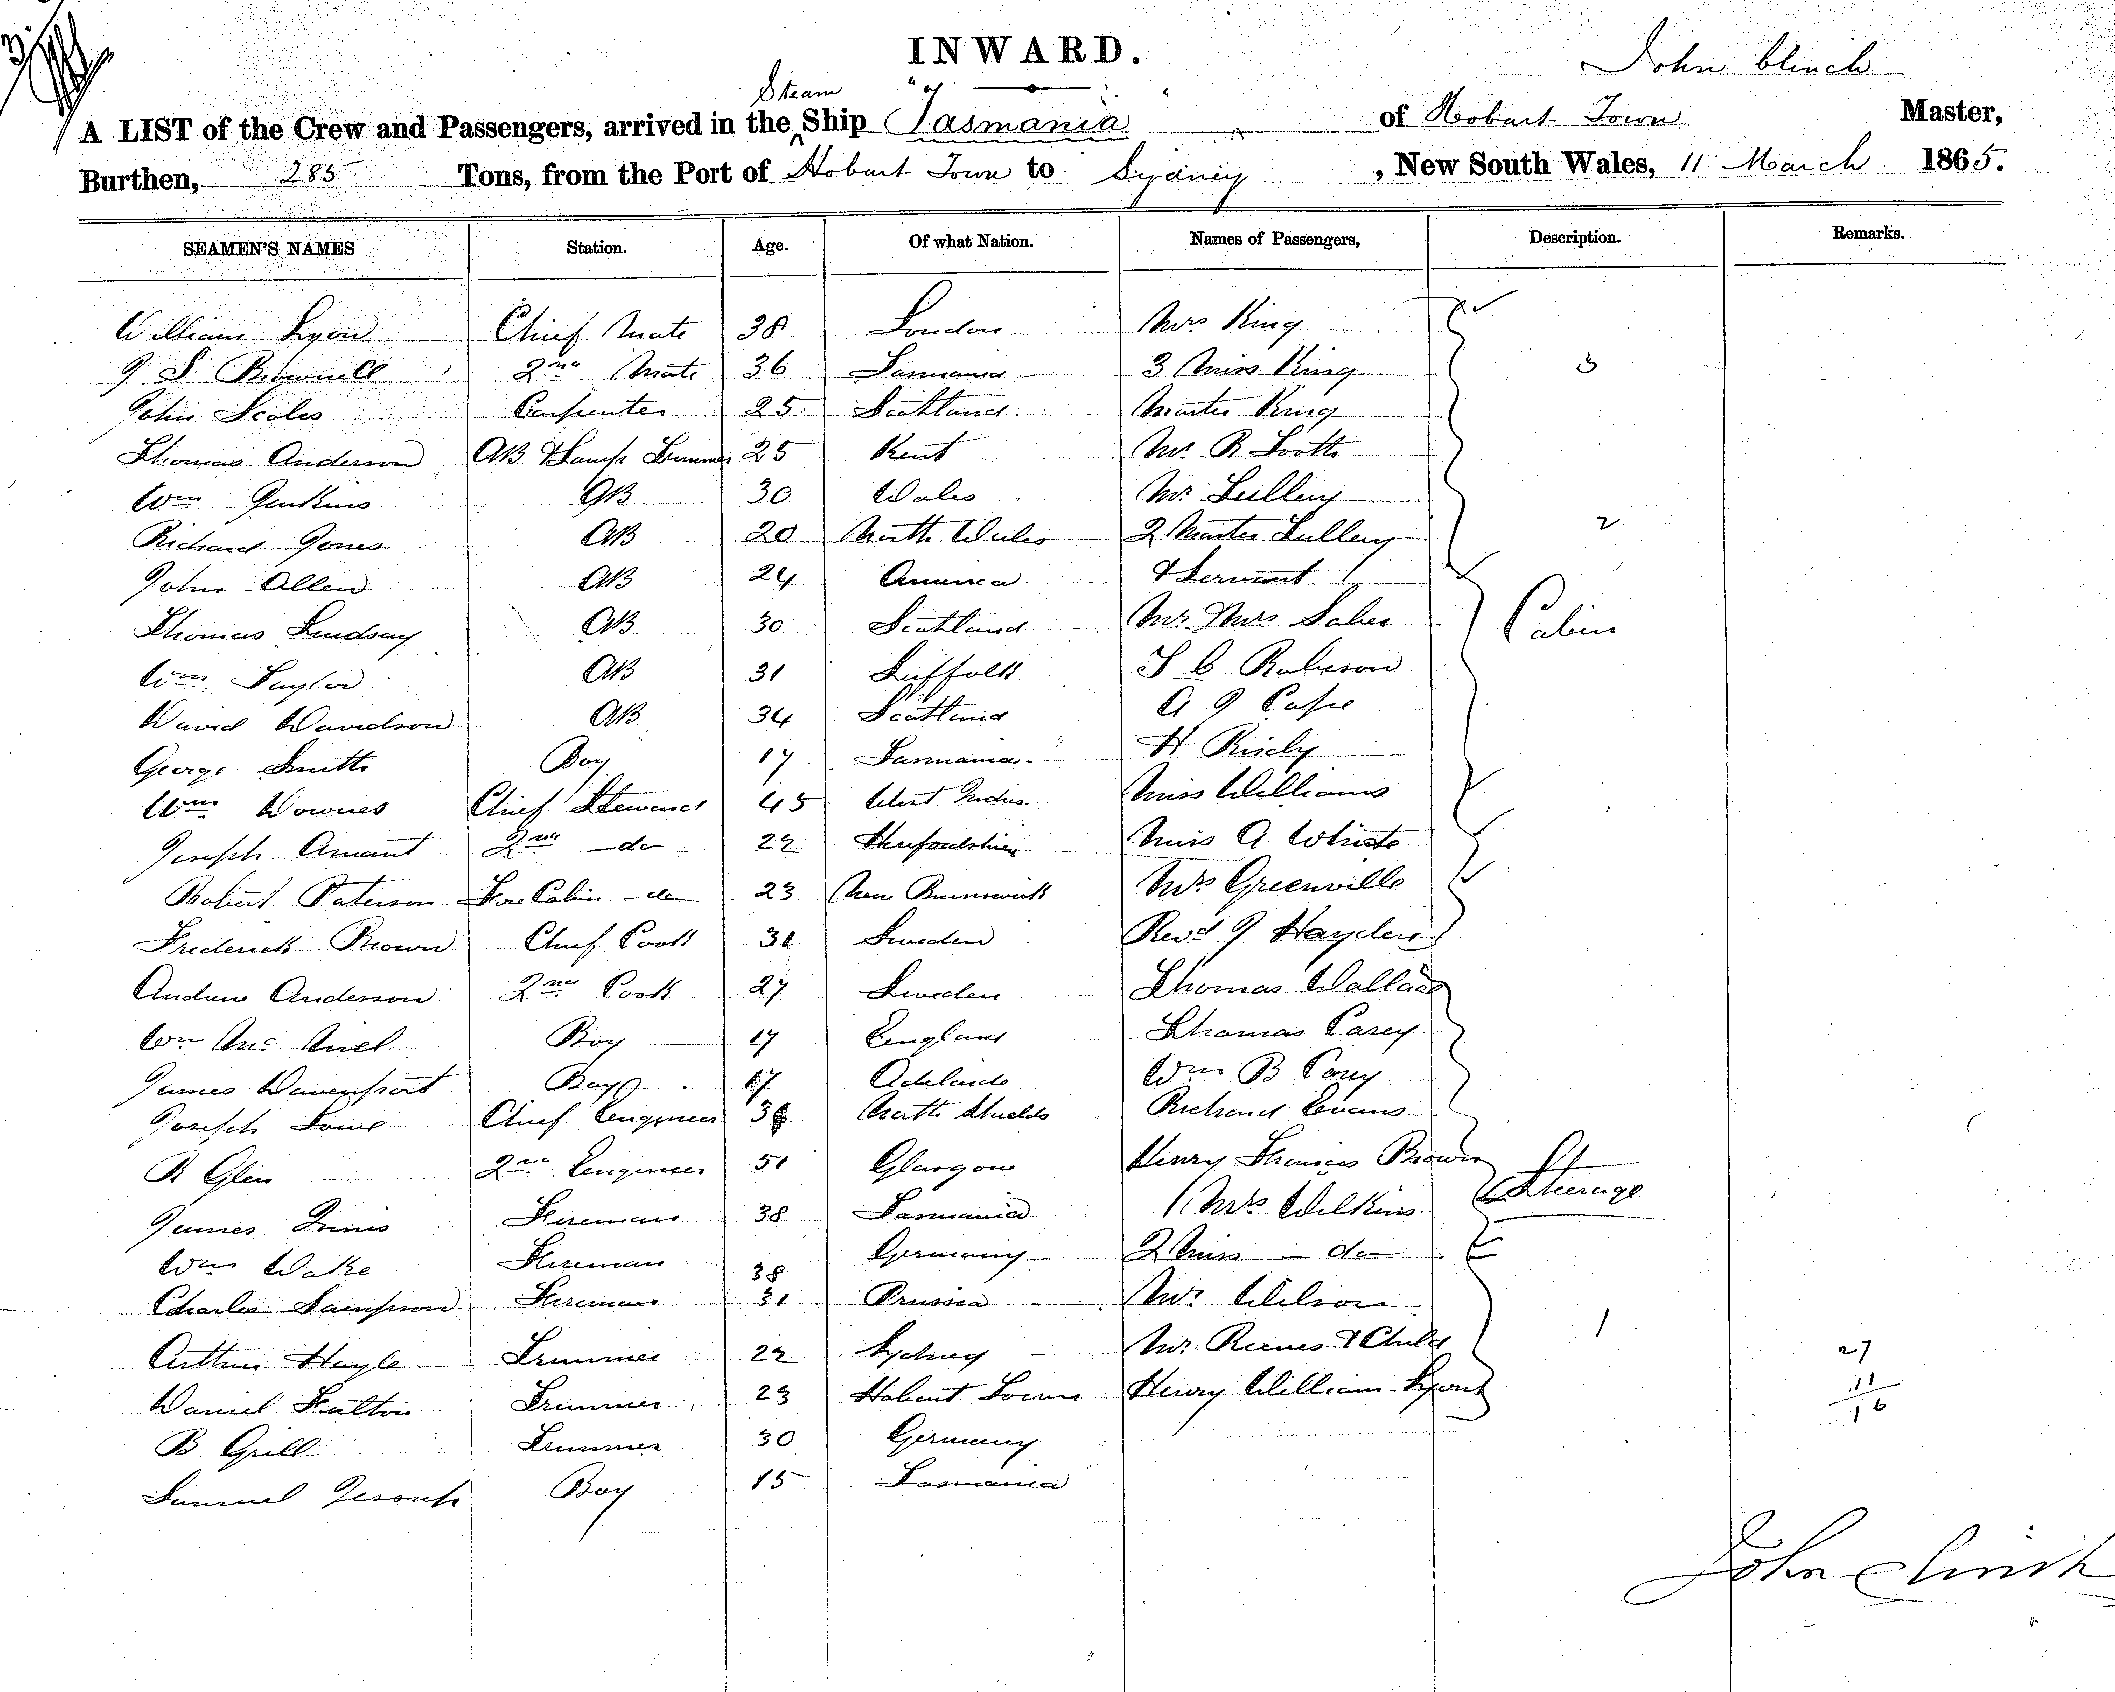 INWARD.
John Clinch
Steam
A LIST of the Crew and Passengers, arrived in the Ship "Tasmania" of Hobart Town Master,
Burthen, 285 Tons, from the Port of Hobart Town to Sydney, New South Wales, 11 March 1865.
SEAMEN'S NAMES Station. Age. Of what Nation. Names of Passengers, Description. Remarks.
William Lyon Chief Mate 38 London Mrs King
Brownell 2nd Mate 36 Tasmania 3 Miss King 3
John Scoles Carpenter 25 Scotland Master King
Thomas Anderson AB & Lamp Trimmer 25 Kent Mr R Tooth
Wm Jenkins AB 30 Wales Mr
Richard Jones AB 20 North Wales 2 Master 2
John Allen AB 24 America & Servant
Thomas Lindsay AB 30 Scotland Mr Mrs Cabin
Wm Taylor AB 31 Suffolk
David Davidson AB 34 Scotland
George Smith Boy 17 Tasmania H
Wm Downes Chief Steward 45 West Indies Miss Williams
Joseph Amant 2nd do 22 Miss A White
Robert Paterson Fore Cabin do 23 New Brunswick Mrs Greenville
Frederick Brown Chief Cook Sweden Revd J Hayden
Andrew Anderson 2nd Cook 27 Sweden Thomas Wallace
Wm Mc Boy 17 England Thomas Carey
James Davenport Boy 17 Adelaide Wm B Carey
Joseph Chief Engineer North Shields Richard Evans
R Glen 2nd Engineer 51 Glasgow Henry Thomas Brown
James Fireman 38 Tasmania Mrs Wilkins Steerage
Wm Wake Fireman 38 Germany 2 Miss do
Charles Sampson Fireman 31 Prussia Mr Wilson 1
Arthur Hayle Trimmer 22 Sydney Mr Reeves & Child 27
Daniel Trimmer 23 Hobart Town Henry William 11
16
B Grill Trimmer 30 Germany
Samuel Boy 15 Tasmania
John Clinch